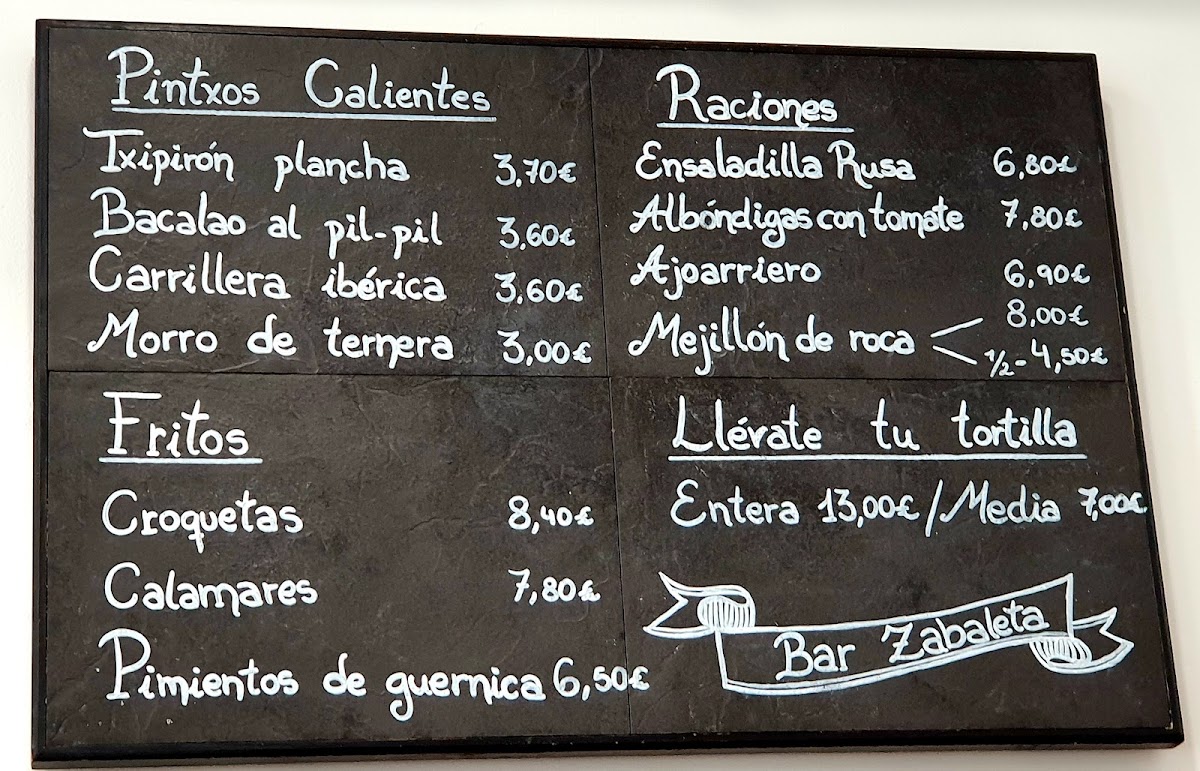 Pintxos Calientes
Txipirón plancha 3,70€
Bacalao al pil-pil 3,60€
Carrillera ibérica 3,60€
Morro de ternera 3,00€
Raciones
Ensaladilla Rusa 6,80€
Albóndigas con tomate 7,80€
Ajoarriero 6,90€
Mejillón de roca 8,00€
1/2- 4,50€
Fritos
Croquetas 8,40€
Calamares 7,80€
Pimientos de guernica 6,50€
Llévate tu tortilla
Entera 13,00€/Media 7,00€
Bar Zabaleta